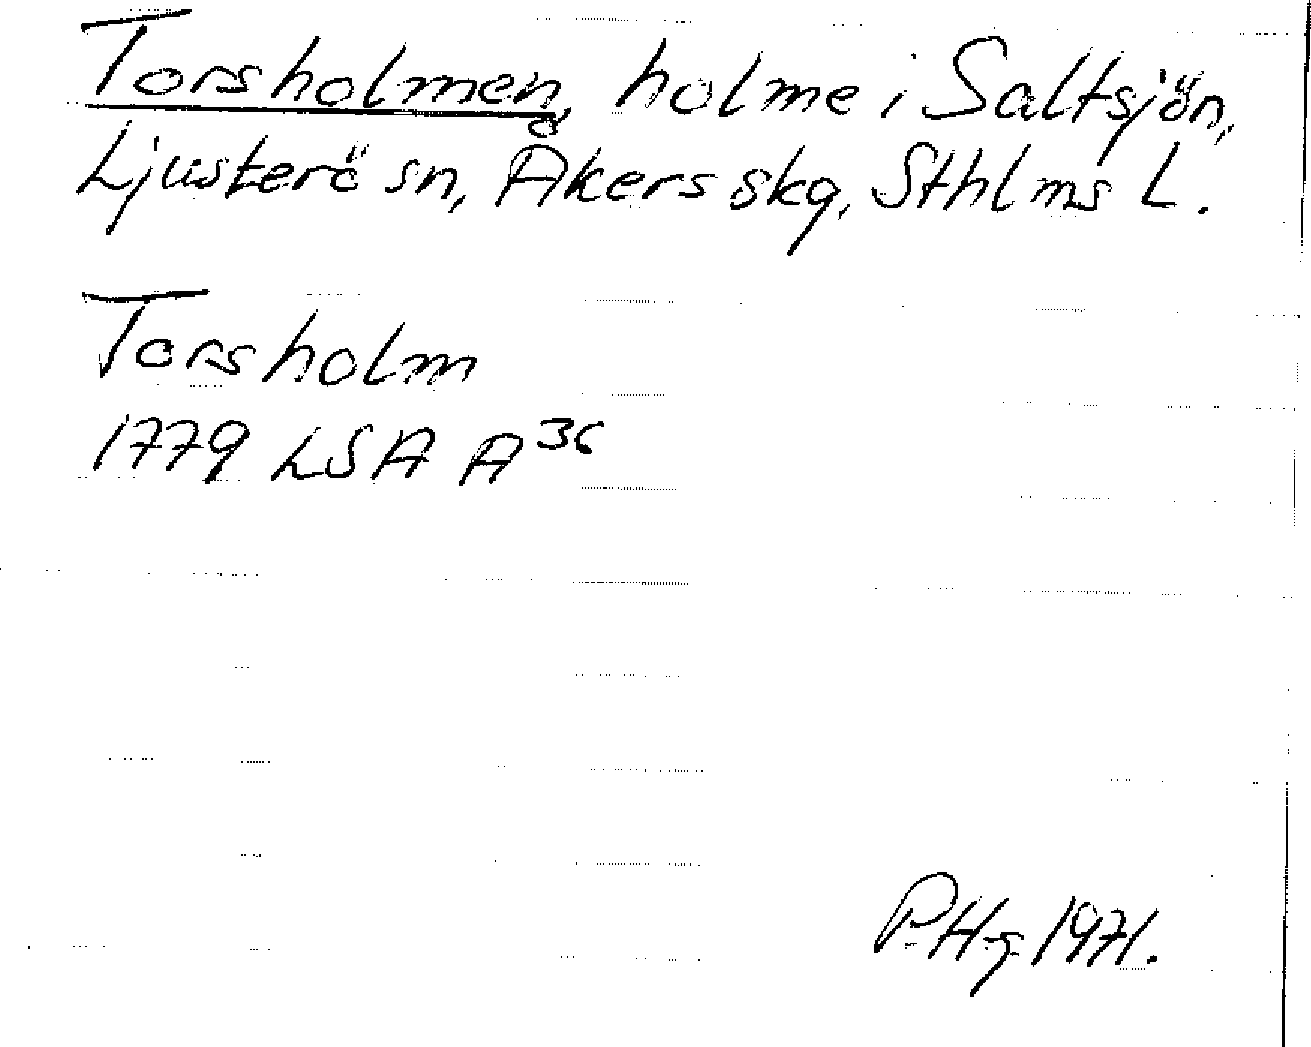 Torsholmen, holme i Saltsjön,
Ljusterö sn, Åkers skg, Sthlms L.
Torsholm
1779 LSA A³⁶
P.Hg 1971.